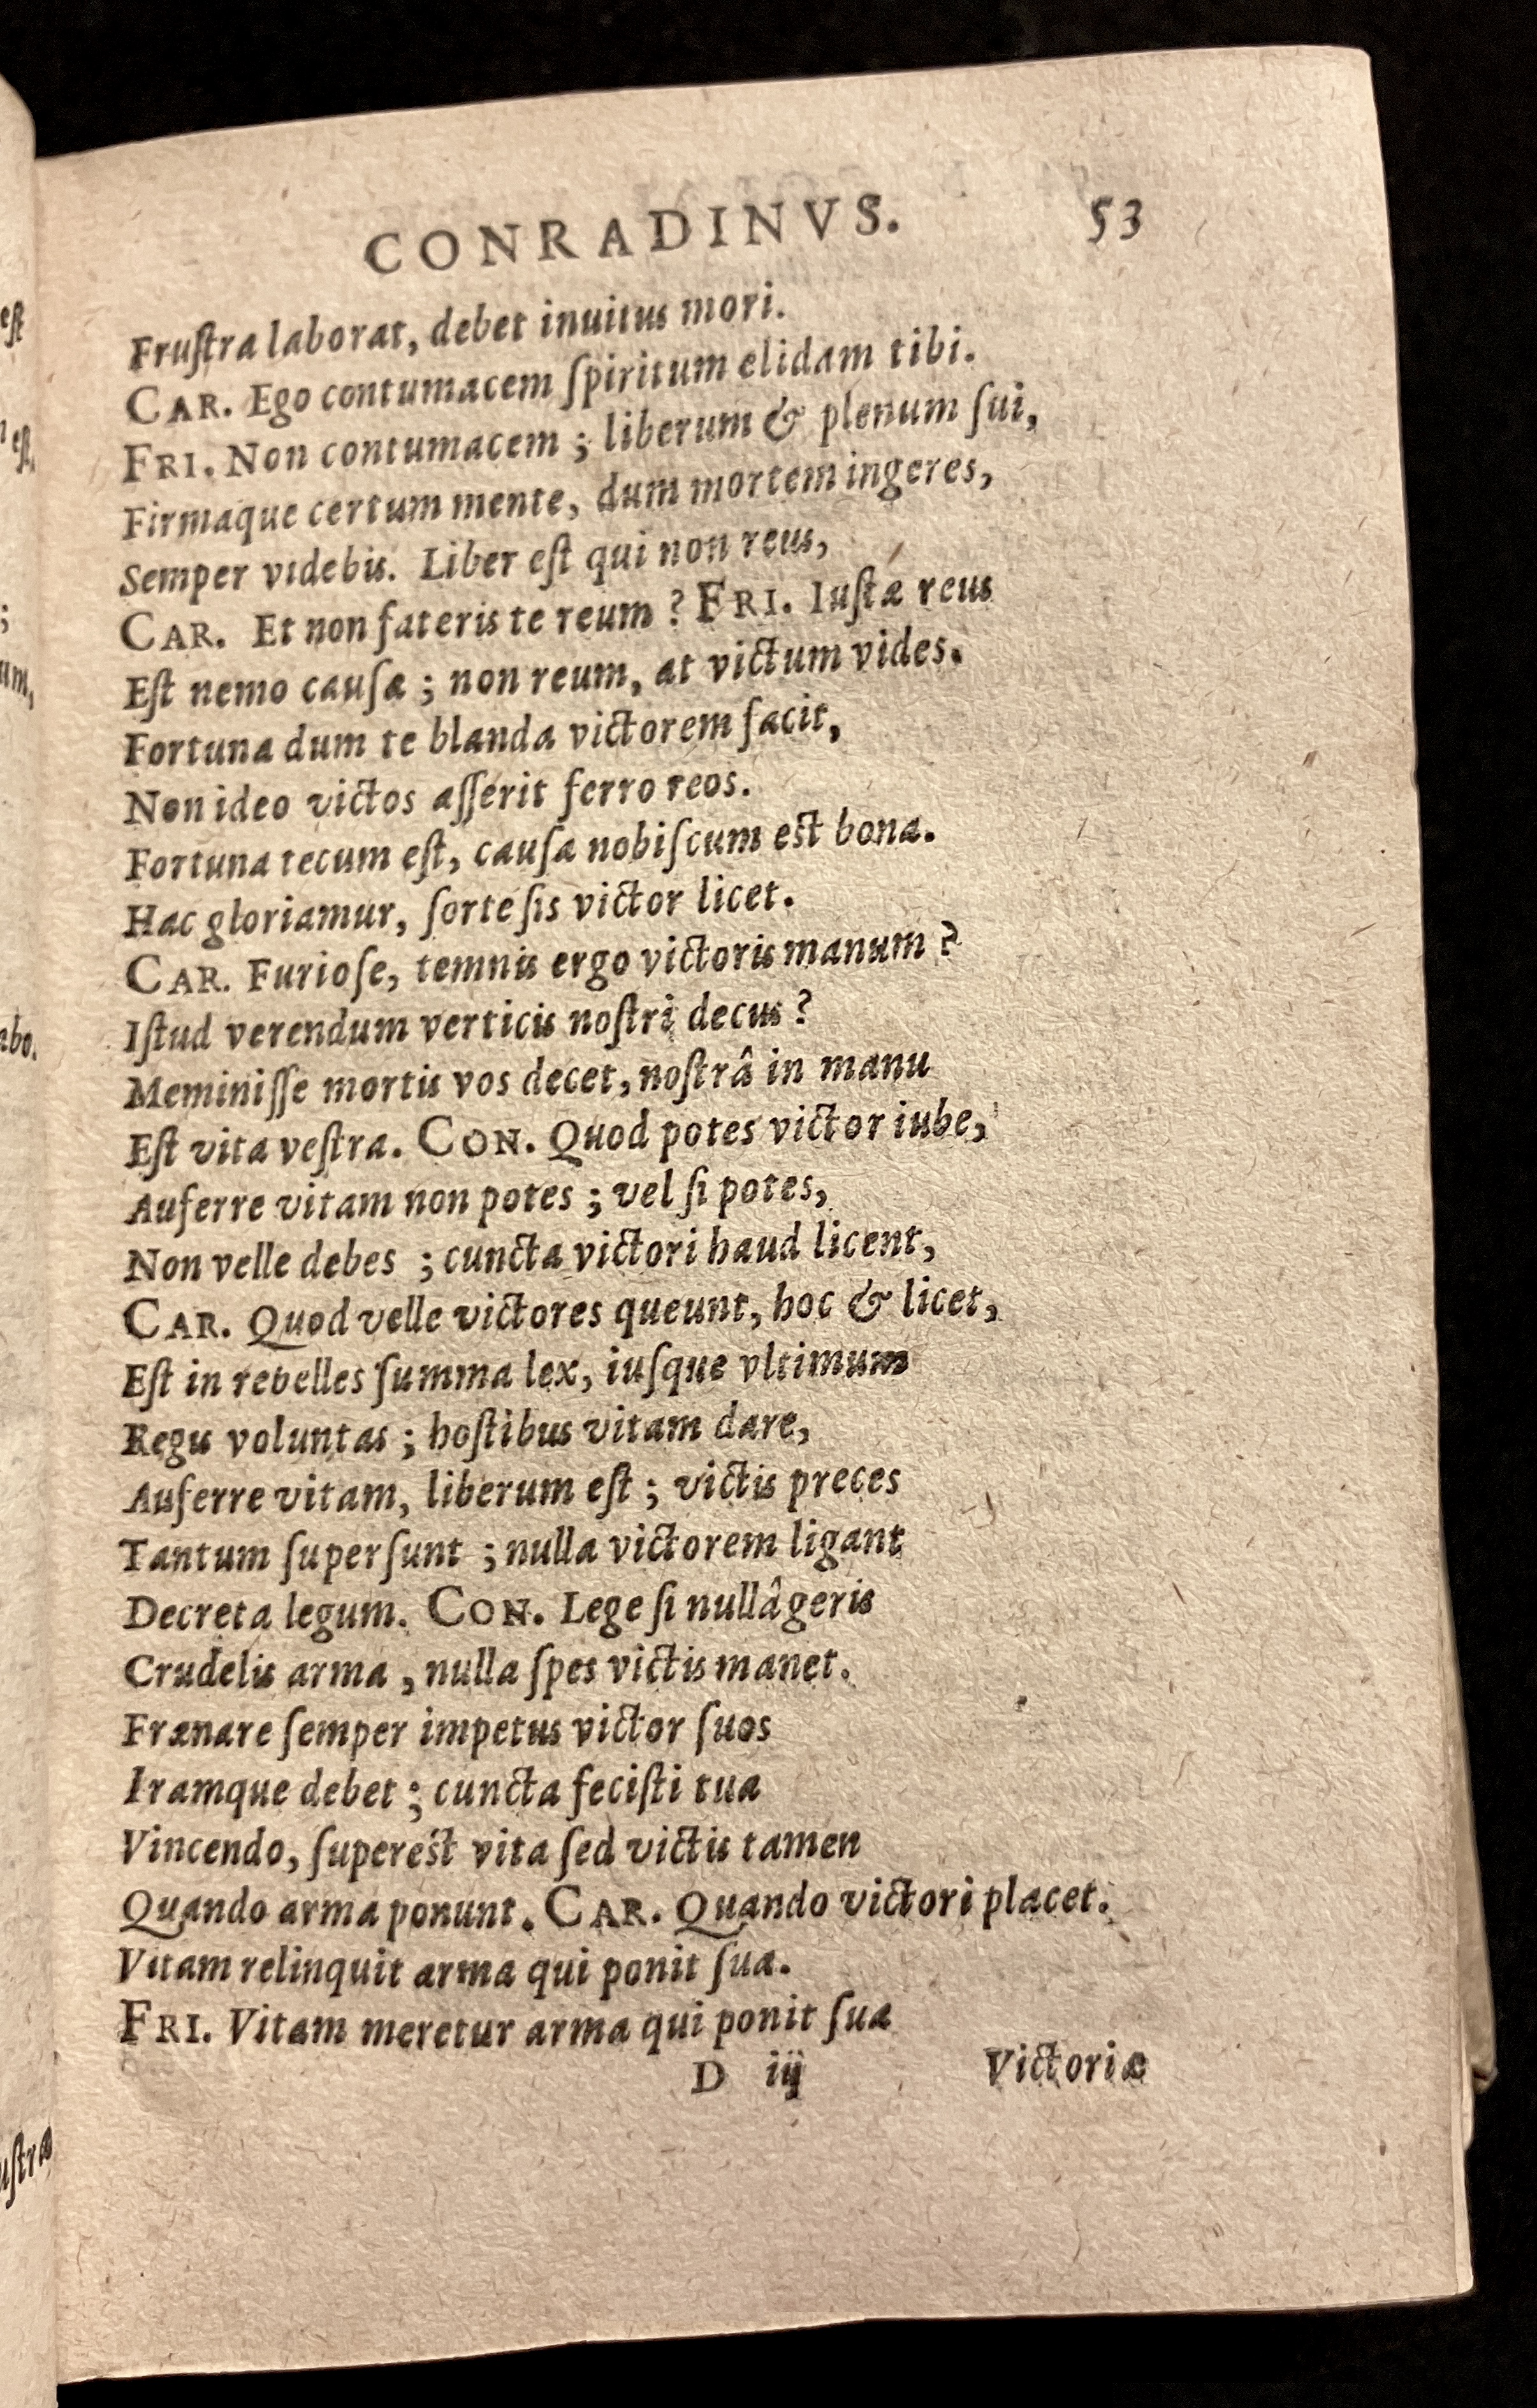 CONRADINVS. 53
Fruſtra laborat, debet inuitus mori.
CAR. Ego contumacem ſpiritum elidam tibi.
FRI. Non contumacem ; liberum & plenum ſui,
Firmaque certum mente, dum mortem ingeres,
Semper videbis. Liber eſt qui non reus,
CAR. Et non fateris te reum ? FRI. Iuſtæ reus
Eſt nemo cauſæ ; non reum, at victum vides.
Fortuna dum te blanda victorem facit,
Non ideo victos aſſerit ferro reos.
Fortuna tecum eſt, cauſa nobiſcum est bona.
Hac gloriamur, ſorte ſis victor licet.
CAR. Furioſe, temnis ergo victoris manum ?
Iſtud verendum verticis noſtri decus ?
Meminiſſe mortis vos decet, noſtrâ in manu
Eſt vita veſtra. CON. Quod potes victor iube,
Auferre vitam non potes ; vel ſi potes,
Non velle debes ; cuncta victori haud licent,
CAR. Quod velle victores queunt, hoc & licet,
Eſt in rebelles ſumma lex, iuſque vltimum
Regis voluntas ; hoſtibus vitam dare,
Auferre vitam, liberum eſt ; victis preces
Tantum ſuperſunt ; nulla victorem ligant
Decreta legum. CON. Lege ſi nullâ geris
Crudelis arma , nulla ſpes victis manet.
Frænare ſemper impetus victor ſuos
Iramque debet ; cuncta feciſti tua
Vincendo, ſuperest vita ſed victis tamen
Quando arma ponunt. CAR. Quando victori placet.
Vitam relinquit arma qui ponit ſua.
FRI. Vitam meretur arma qui ponit ſua
D iij Victoriæ